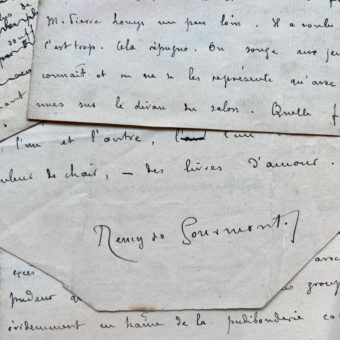 de
M. Pierre Louys un peu loin. Il a voulu
C'est trop. Cela répugne. On songe aux jeu
connaît et on ne se les représente qu'avec
nues sur le divan du salon. Quelle f
l'un et l'autre,
uleur de chair, — des livres d'amour.
Remy de Gourmont.
avec
pudeur
groupe
évidemment en haine de la pudibonderie